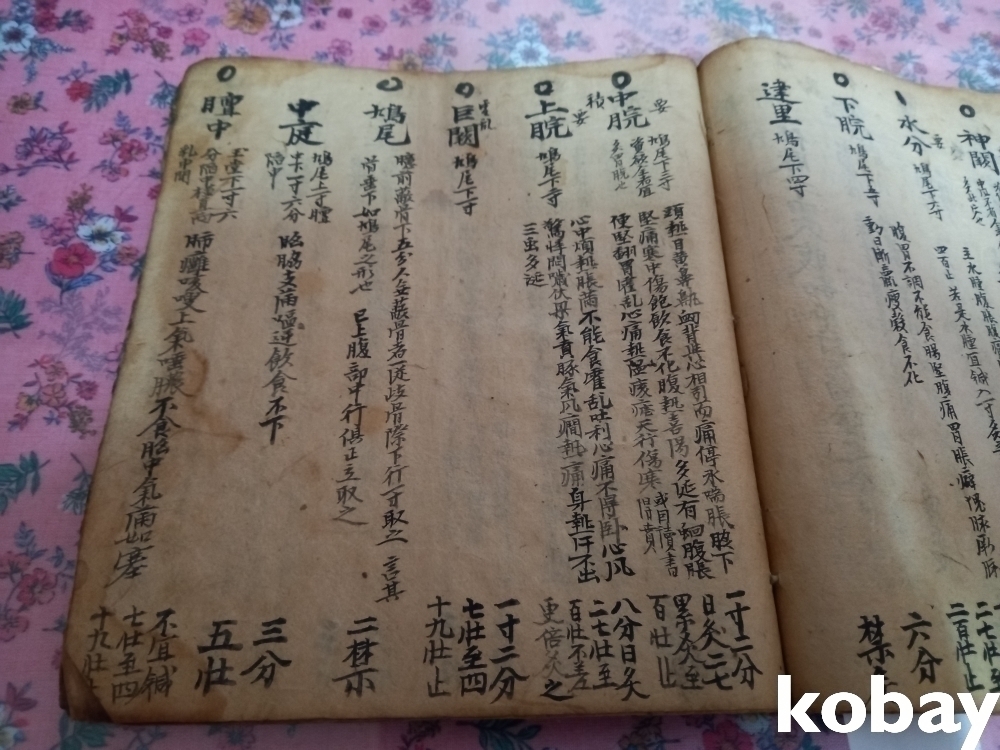 神闕
水分
鳩尾下寸
六分
下脘
鳩尾下五寸
腹胃不調不能食腸堅腹痛胃脹癖
動日漸羸瘦穀食不化
禁
建里
鳩尾下四寸
中脘
鳩尾下三寸
頭熱目黃鼻熱衄背與心相引而痛停水喘脹脇下
堅痛寒中傷飽飲食不化腹熱喜渴多延有蛔腹脹
便堅翻胃霍乱心痛熱溫痎瘧天行傷寒
或因讀書
一寸二分
日灸二七
累灸至
百壯止
上脘
鳩尾下二寸
心中煩熱脹蕑不能食霍乱吐利心痛不得卧心风
驚悸悶噦伏梁氣賁豚氣风癎熱痛身熱汗不出
三虫多延
八分日灸
二七壯至
百壯不差
更倍灸之
巨闕
鳩尾下寸
一寸二分
七壯至四
十九壯止
鳩尾
臆前蔽骨下五分人無蔽骨者從歧骨際下行一寸取之 言其
骨垂下如鳩尾之形也 已上腹部中行俱正立取之
二禁
中庭
鳩尾上一寸膻
中下一寸六分
陷中
胎脇支滿噎逆飲食不下
三分
五壯
膻中
玉堂下一寸六
分陷
乳中間
肺癰咳嗽上氣唾膿不食胸中氣滿如塞
不宜鍼
七壯至四
十九壯止
kobay